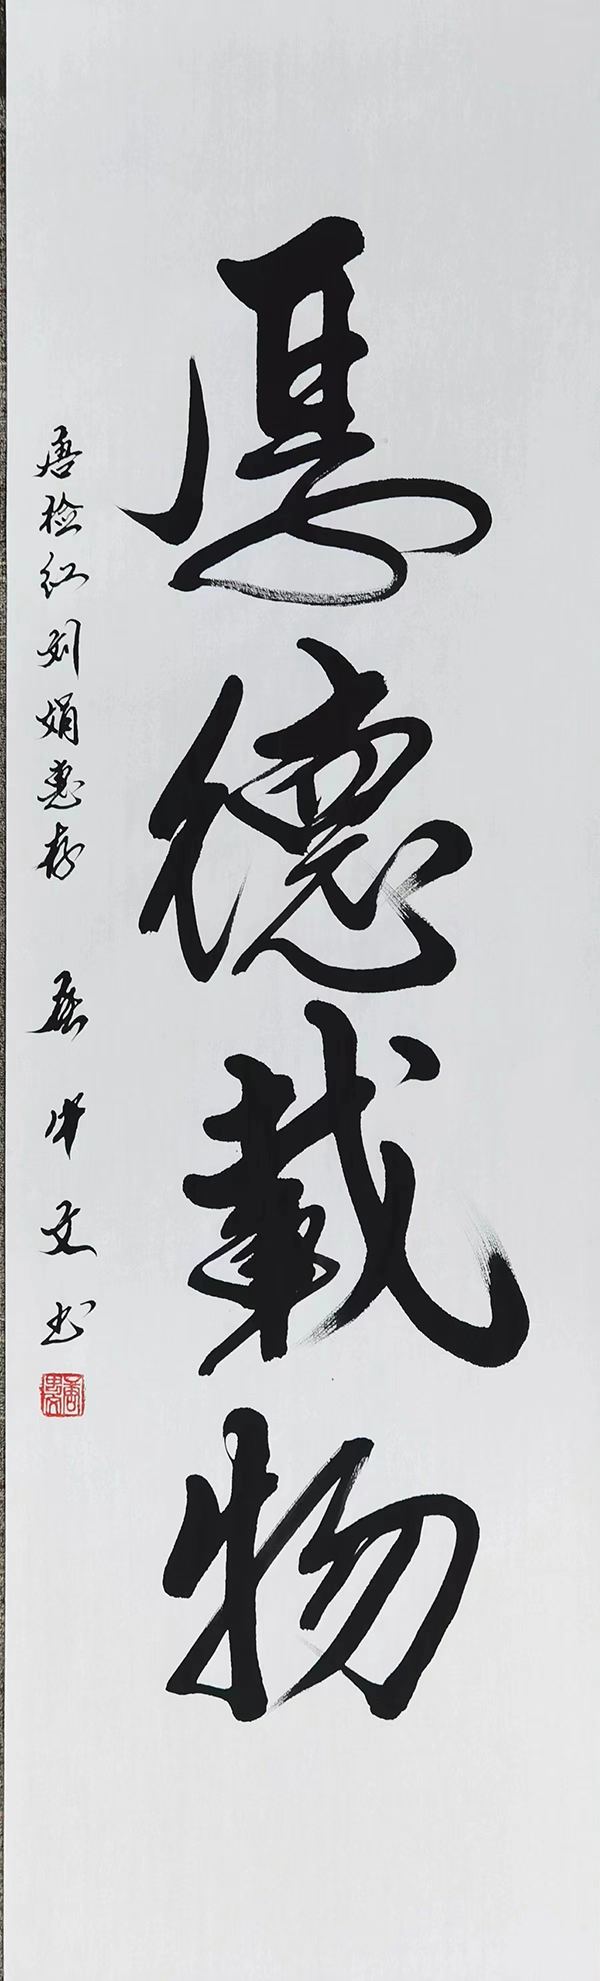 厚德载物
唐检红刘娟惠存 文书